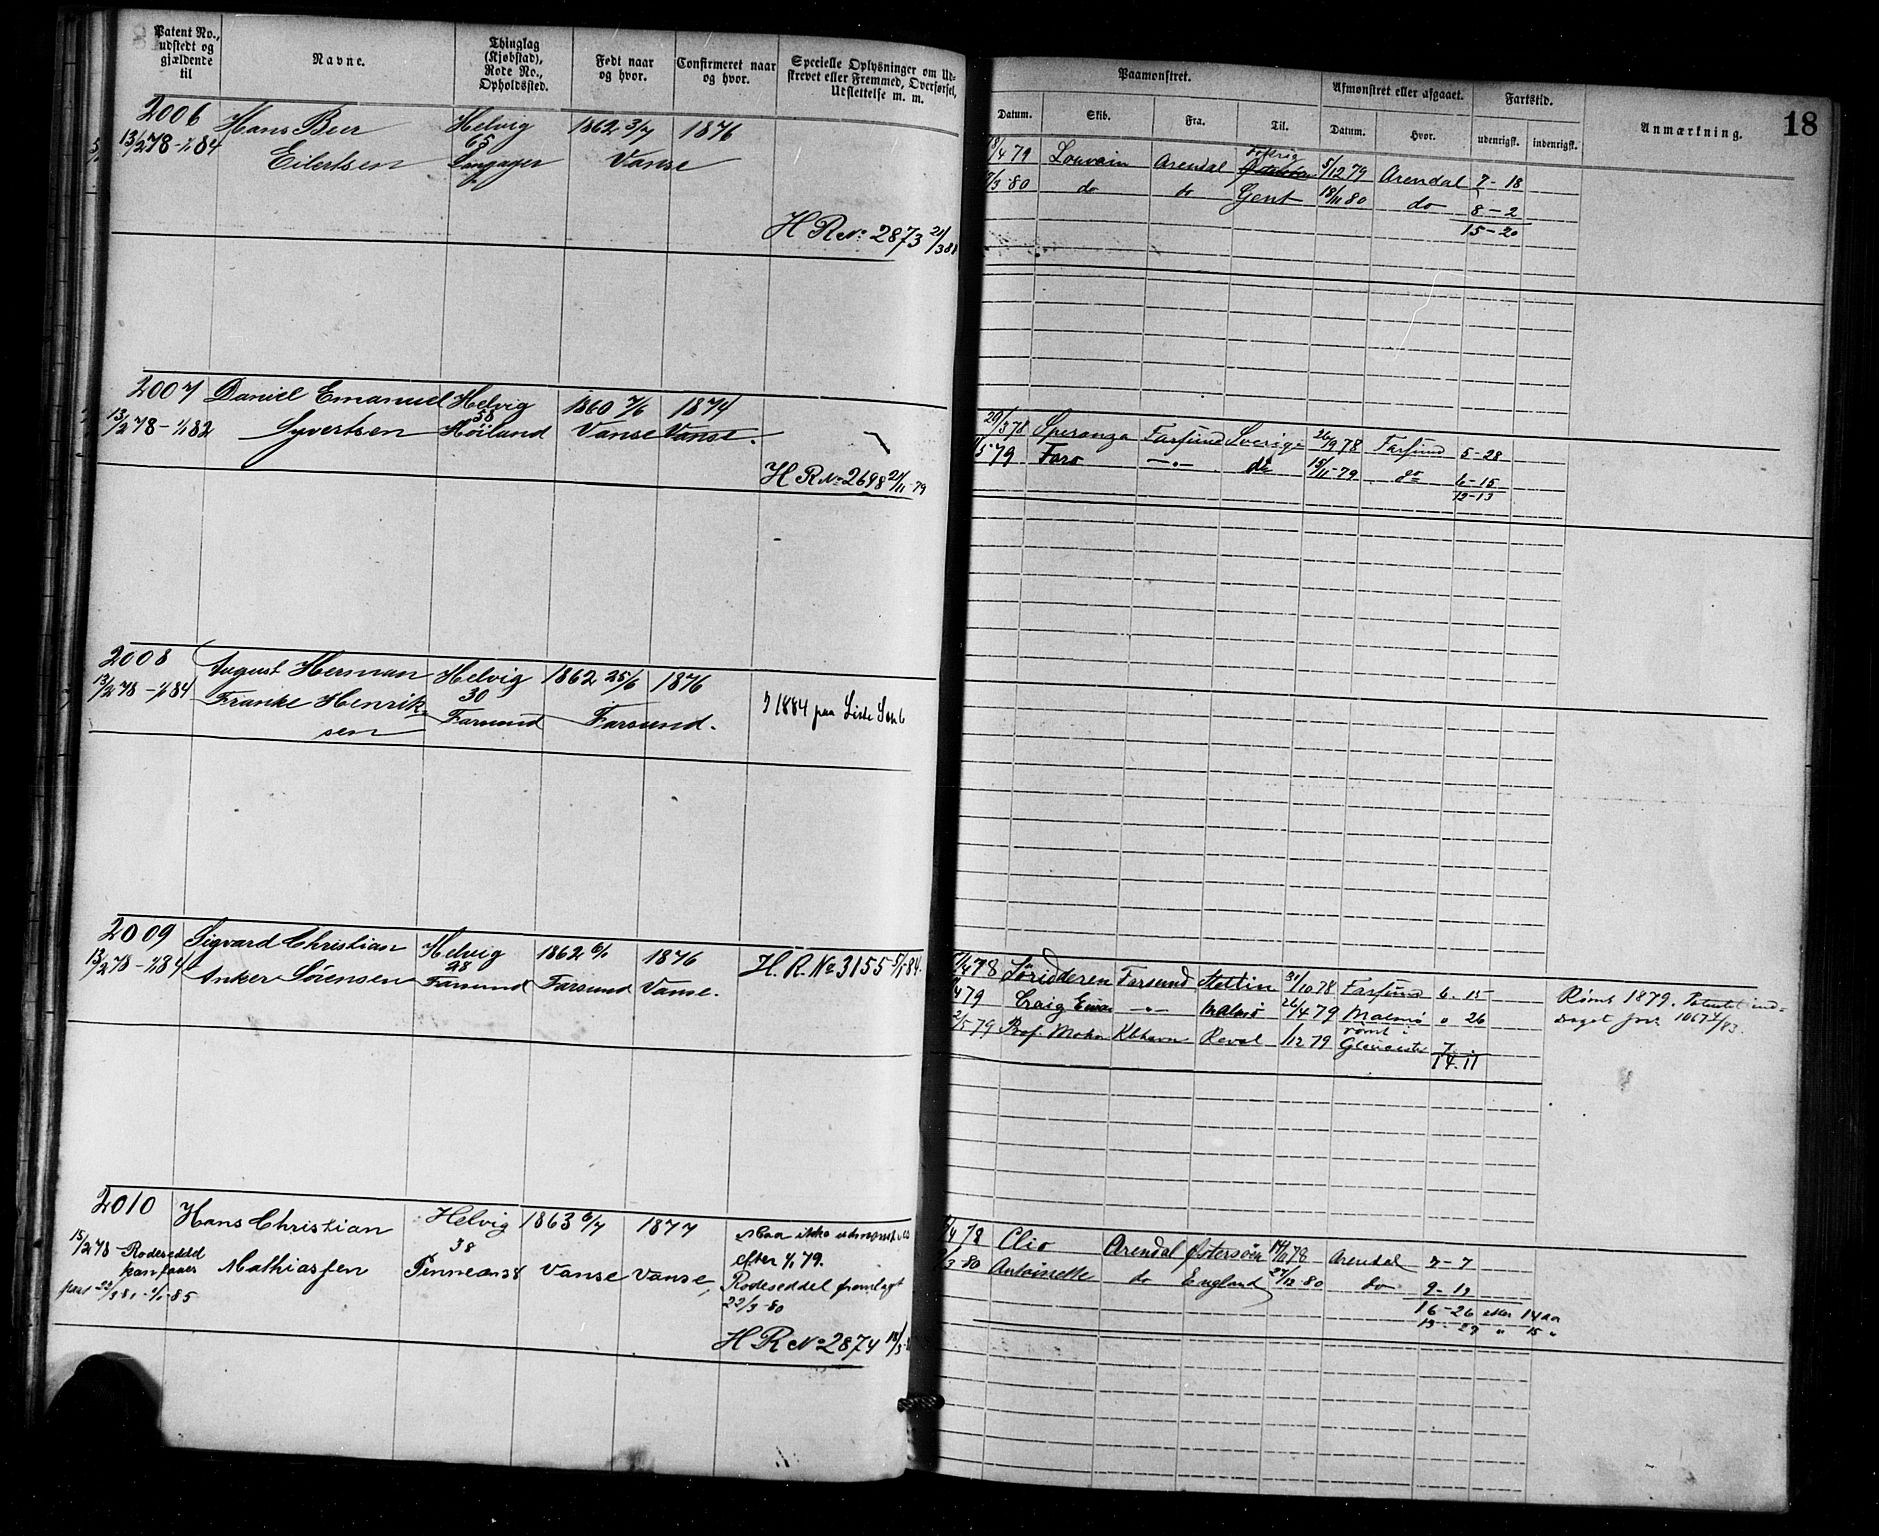 Patent No., udstedt og gjældende til
Navne.
Thinglag (Kjøbstad), Rode No., Opholdssted.
Født naar og hvor.
Confirmeret naar og hvor.
Specielle Oplysninger om Udskrevet eller Fremmed, Overførsel, Udslettelse m. m.
Paamønstret.
Datum.
Skib.
Fra.
Til.
Afmønstret eller afgaaet.
Datum.
Hvor.
Fartstid.
udenrigsk.
indenrigsk.
Anmærkning.
18
2006 Hans Beer Helvig 1862 3/7 1876
13/2 78 - 1/1 84 Eilertsen 65 Langager Vanse
H R No 2873 21/3 81
8/4 79 Louvain Arendal 5/12 79 Arendal 7 - 18
/3 80 do do Gent 18/11 80 do 8 - 2
15 - 20
2007 Daniel Emanuel Helvig 1860 7/6 1874
13/2 78 - 1/1 82 Syvertsen 58 Høiland Vanse Vanse.
H R No 2698 21/11 79
29/3 78 Speranza Farsund Sverige 26/9 78 Farsund 5 - 28
/5 79 Faro -"- do 15/11 79 do 6 - 15
12 - 13
2008 August Herman Helvig 1862 25/6 1876
13/2 78 - 1/1 84 Franke Henriksen 30 Farsund Farsund.
1884 paa Liste
2009 Sigvard Christian Helvig 1862 6/1 1876
13/2 78 - 1/1 84 Anker Sörensen 28 Farsund Farsund Vanse.
H. R. No 3155 5/1 84.
/4 78 Farsund Stettin 31/10 78 Farsund 6. 15
/4 79 Craig -"- Malmö 26/4 79 Malmö " 26
2/5 79 Prof. Mohn Kbhavn Reval /12 79 rømt i 7
14. 11
Römt 1879. Patentet inddraget
2010 Hans Christian Helvig 1863 6/7 1877
15/2 78 Rodeseddel Mathiassen 38 Vanse Vanse,
Maa ikke udmønstres
efter 1/1 79.
Rodeseddel fremlagt
22/3 80
H R No 2874
/4 78 Clio Arendal Østersöen 14/11 78 Arendal 7 - 7
/3 80 Antoinette do England 27/12 80 do 9 - 19
16 - 26 efter 14 aar
" 15 "